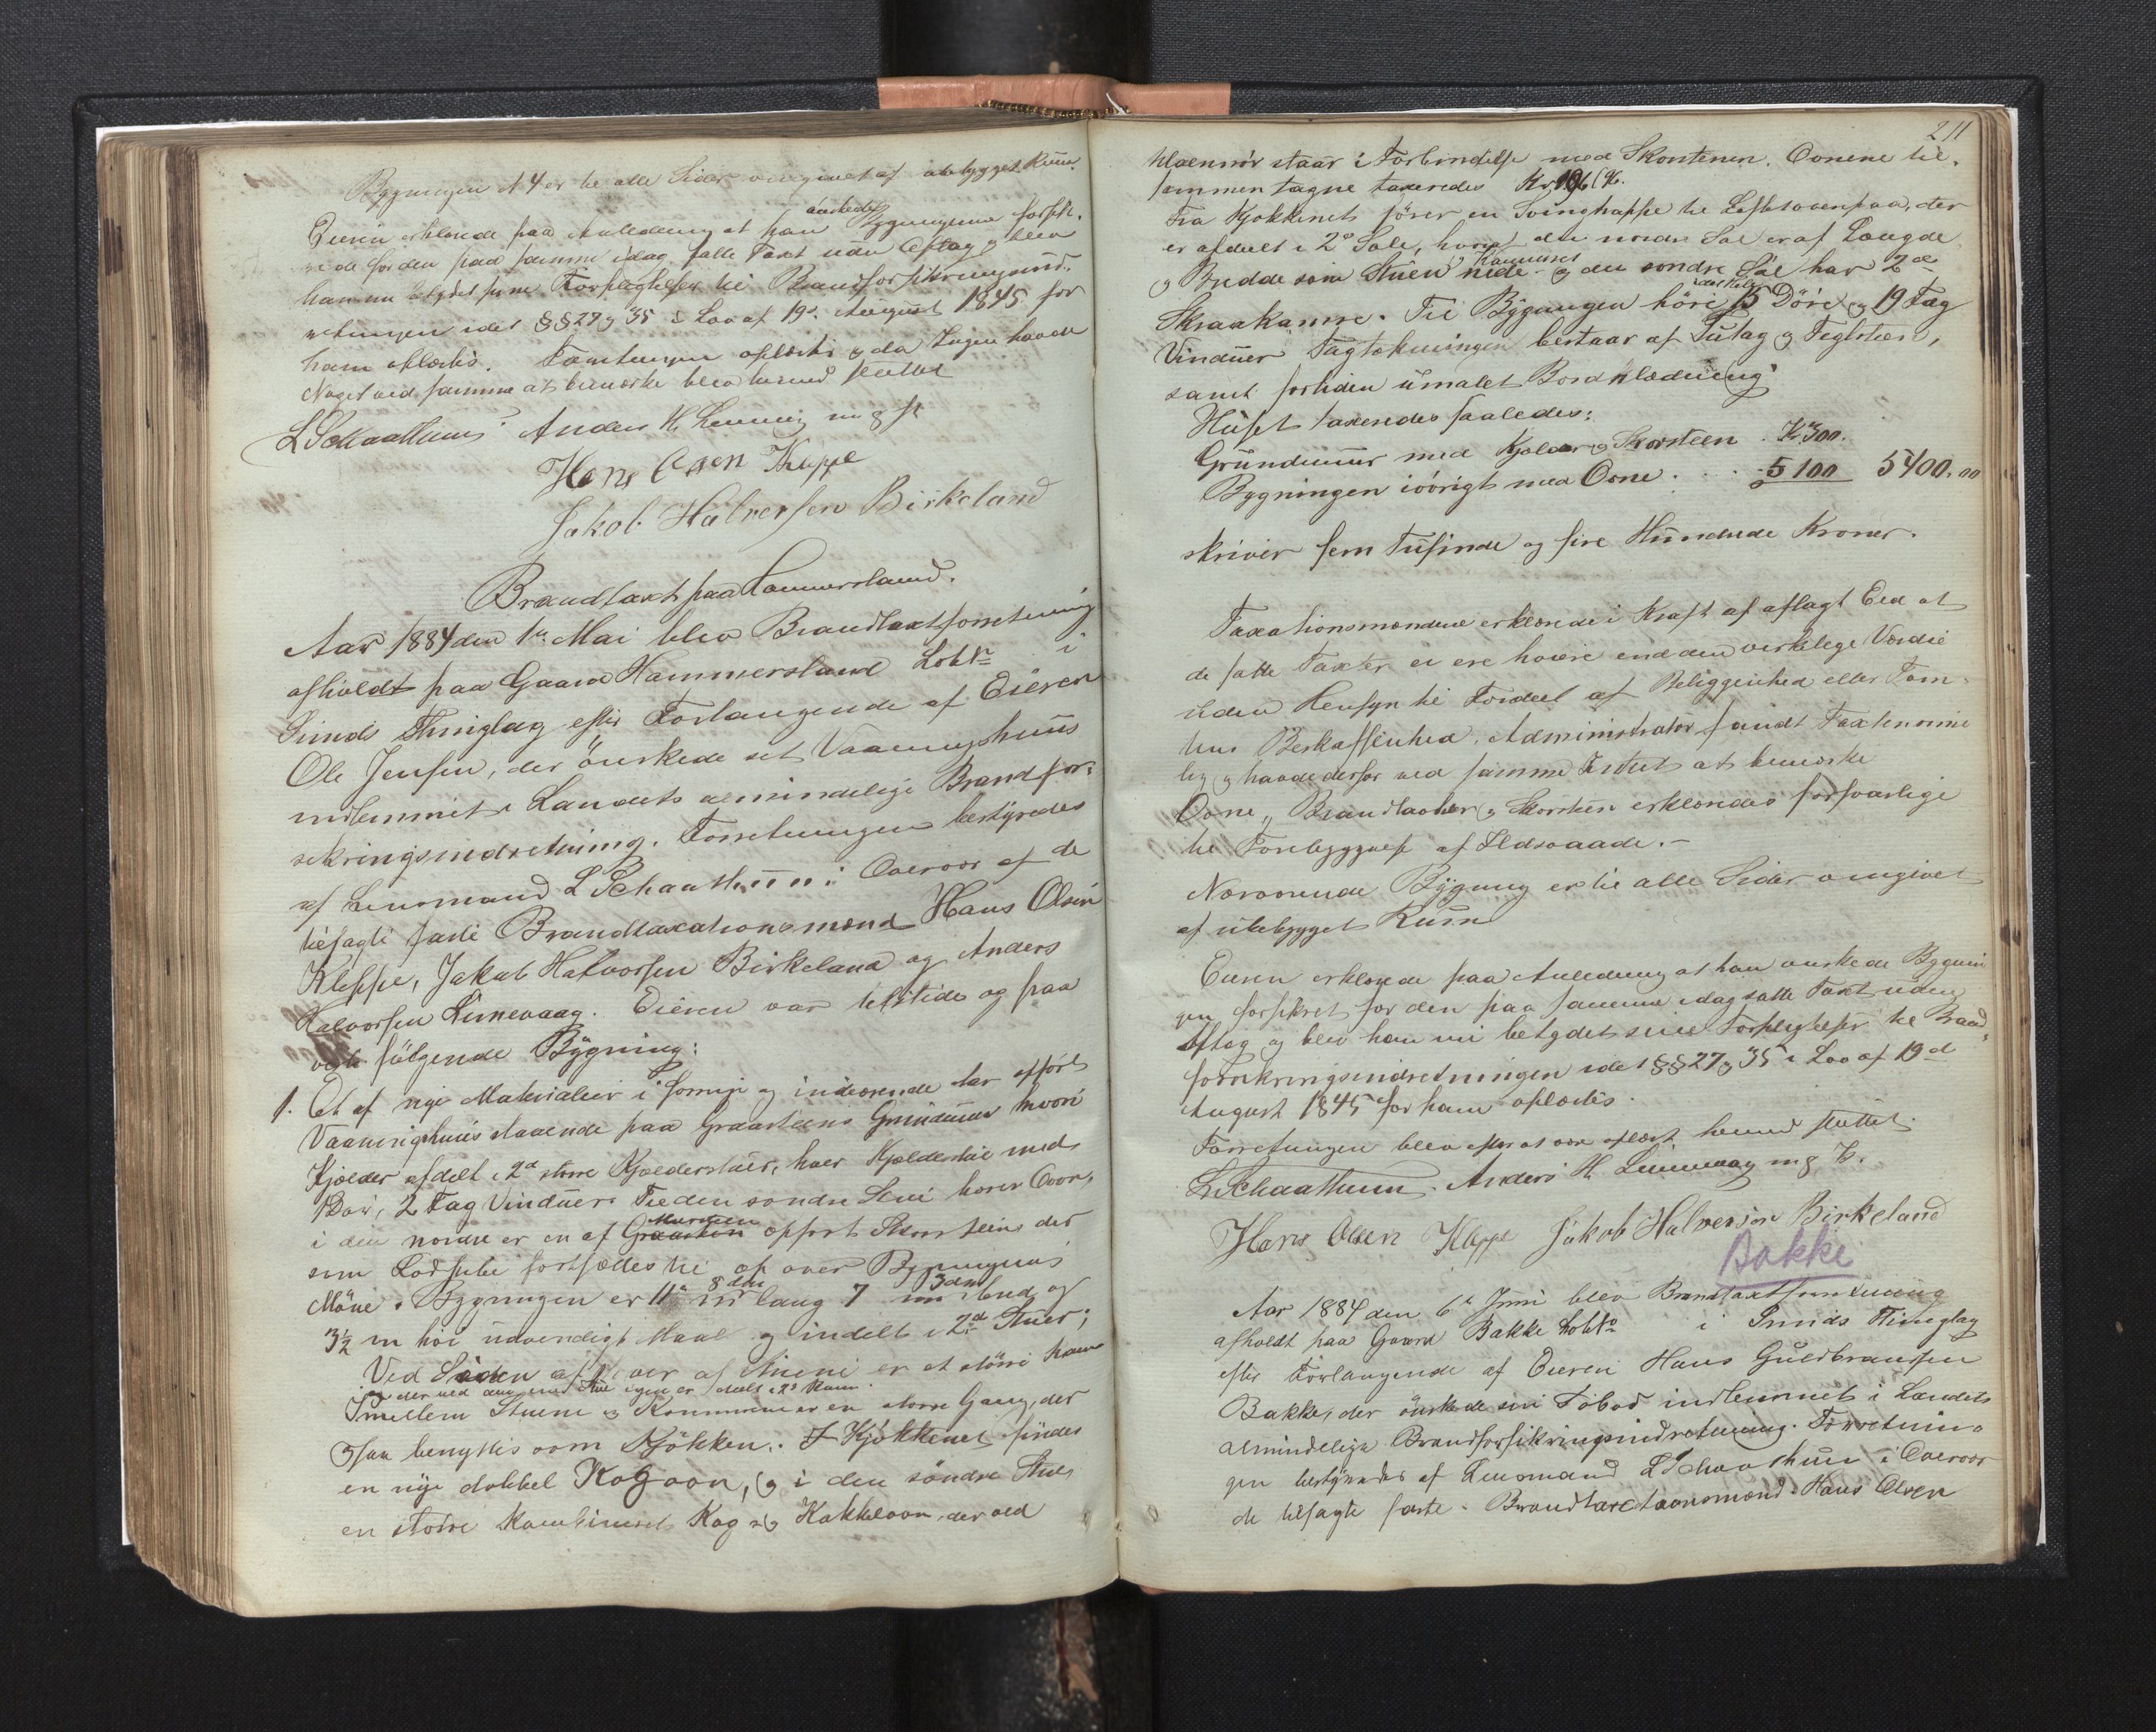 Bygningen N 4 er til alle Sider omgivet af ubebygget Rum.
Eieren erklærede paa Anledning at han ønskede Bygningerne forsik-
rede for den paa samme idag satte Taxt uden Afslag og blev
han nu betydet sine Forpligtelser til Brandforsikringsind-
retningen idet §§ 27 og 35 i Lov af 19de August 1845 for
ham oplæstes. Forretningen oplæstes og da Ingen havde
Noget ved samme at bemærke blev hermed sluttet
L Schaathun Anders H. m. p. P.
Hans Olsen Kleppe
Jakob Halversen Birkeland
Brandtaxt paa Hammersland.
Aar 1884 den 1ste Mai blev Brandtaxtforretning
afholdt paa Gaard Hammersland Lob No i
Sunds Thinglag efter Forlangende af Eieren
Ole Jensen, der ønskede sit Vaaningshuus
indlemmet i Landets almindelige Brandfor-
sikringsindretning. Forretningen bestyredes
af Lensmand L Schaathun i Overvær af de
tilsagte faste Brandtaxationsmænd Hans Olsen
Kleppe, Jakob Halvorsen Birkeland og Anders
Halvorsen Linnevaag. Eieren var tilstede og paa
viste følgende Bygning:
1. Et af nye Materialier i forrige og indeværende Aar opført
Vaaningshuus staaende paa Graasteens Grundmuur hvori
Kjelder afdelt i 2de større Kjelderstuer, hver Kjelderstue med
1 Dør, 2 Fag Vinduer. Til den søndre Stue hører Ovn,
i den nordre er en af Graasteen Muursteen opført Skorsteen der
som Lodpibe fortsættes til op over Bygningens
Møne. Bygningen er 11 m 8 dm lang 7 m 3 dm bred og
3½ m høi udvendigt Maal og indelt i 2de Stuer;
Ved Siden af hver af Stuene er et større Kam
der ved den ene Stue igjen er deelt i 2de Rum.
Imellem Stuene og Kammerne er en større Gang, der
ogsaa benyttes som Kjøkken. I Kjøkkenet findes
en nye dobbel Kogoon, og i den søndre Stue
en større kombineret Kog- og Kakkeloon, der ved
211
staar i Forbindelse med Skorstenen. Ovnene til-
sammen tagne taxeredes Kr
Fra Kjøkkenet fører en Svingtrappe til Loftet ovenpaa, der
er afdeelt i 2de Sale, hvoraf den nordre Sal er af Længde
og Bredde som Stuen og Kammeret nede og den søndre Sal har 2de
Skraakamre. Til Bygningen hører 15 Døre og 19 Fag
Vinduer Tagtækningen bestaar af Sutag og Teglsteen,
samt fortiden umalet Bordklædning
Huset taxeredes saaledes:
Grundmuur med Kjelder og Skorsteen . Kr 300.
Bygningen iøvrigt med Ovne . . . - 5100 5400,00
skriver fem Tusinde og fire Hundrede Kroner.
Taxationsmændene erklærede i Kraft af aflagt Eed at
de satte Taxter ei ere høiere end den virkelige Værdie
uden Hensyn til Fordeel af Beliggenhed eller Tom-
tens Beskaffenhed. Administrator fandt Taxten rime
lig og havde derfor ved samme Intet at bemærke
Ovne, Brandmurer og Skorsteen erklæredes forsvarlige
til Forebyggelse af Ildsvaade.-
Nærværende Bygning er til alle Sider omgivet
af ubebygget Rum
Eieren erklærede paa Anledning at han ønskede Bygnin
gen forsikret for den paa samme idag satte Taxt uden
Afslag og blev han nu betydet sine Forpligtelser til Brand-
forsikringsindretningen idet §§ 27 og 35 i Lov af 19de
August 1845 for ham oplæstes.
Forretningen blev efter at være oplæst hermed sluttet
L Schaathun. Anders H. Linnevaag m. p. P.
Hans Olsen Kleppe Jakob Halversen Birkeland
Bakke
Aar 1884 den 6te Juni blev Brandtaxtforretning
afholdt paa Gaard Bakke Lob No i Sunds Thinglag
efter Forlangende af Eieren Hans Guldbransen
Bakke, der ønskede sin Søbod indlemmet i Landets
almindelige Brandforsikringsindretning. Forretnin-
gen bestyredes af Lensmand L Schaathun i Overvær
de tilsagte faste Brandtaxtationsmænd Hans Olsen